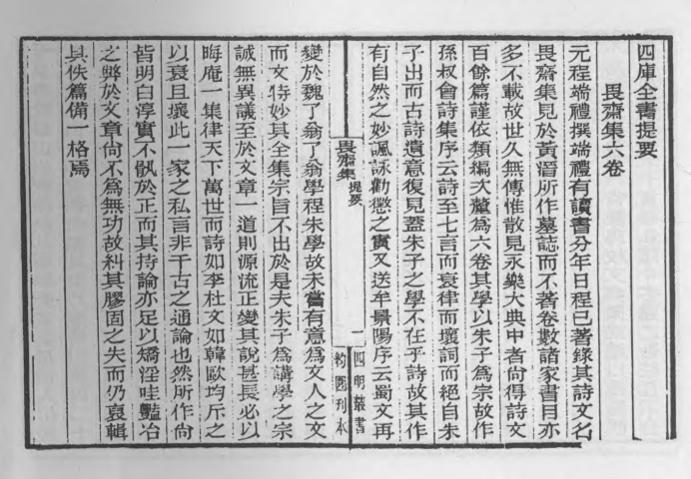 四庫全書提要
畏齋集六卷
元程端禮撰端禮有讀書分年日程已著錄其詩文名
畏齋集見於黃溍所作墓誌而不著卷數諸家書目亦
多不載故世久無傳惟散見永樂大典中者尙得詩文
百餘篇謹依類編次釐爲六卷其學以朱子爲宗故作
孫叔會詩集序云詩至七言而衰律而壞詞而絕自朱
子出而古詩遺意復見蓋朱子之學不在乎詩故其作
有自然之妙諷詠勸懲之實又送牟景陽序云蜀文再
畏齋集 提要
一
四明叢書
約園刊本
變於魏了翁了翁學程朱學故未嘗有意爲文人之文
而文特妙其全集宗旨不出於是夫朱子爲講學之宗
誠無異議至於文章一道則源流正變其說甚長必以
晦庵一集律天下萬世而詩如李杜文如韓歐均斥之
以衰且壞此一家之私言非千古之通論也然所作尙
皆明白淳實不骩於正而其持論亦足以矯淫哇豔冶
之弊於文章尙不爲無功故糾其膠固之失而仍裒輯
其佚篇備一格焉